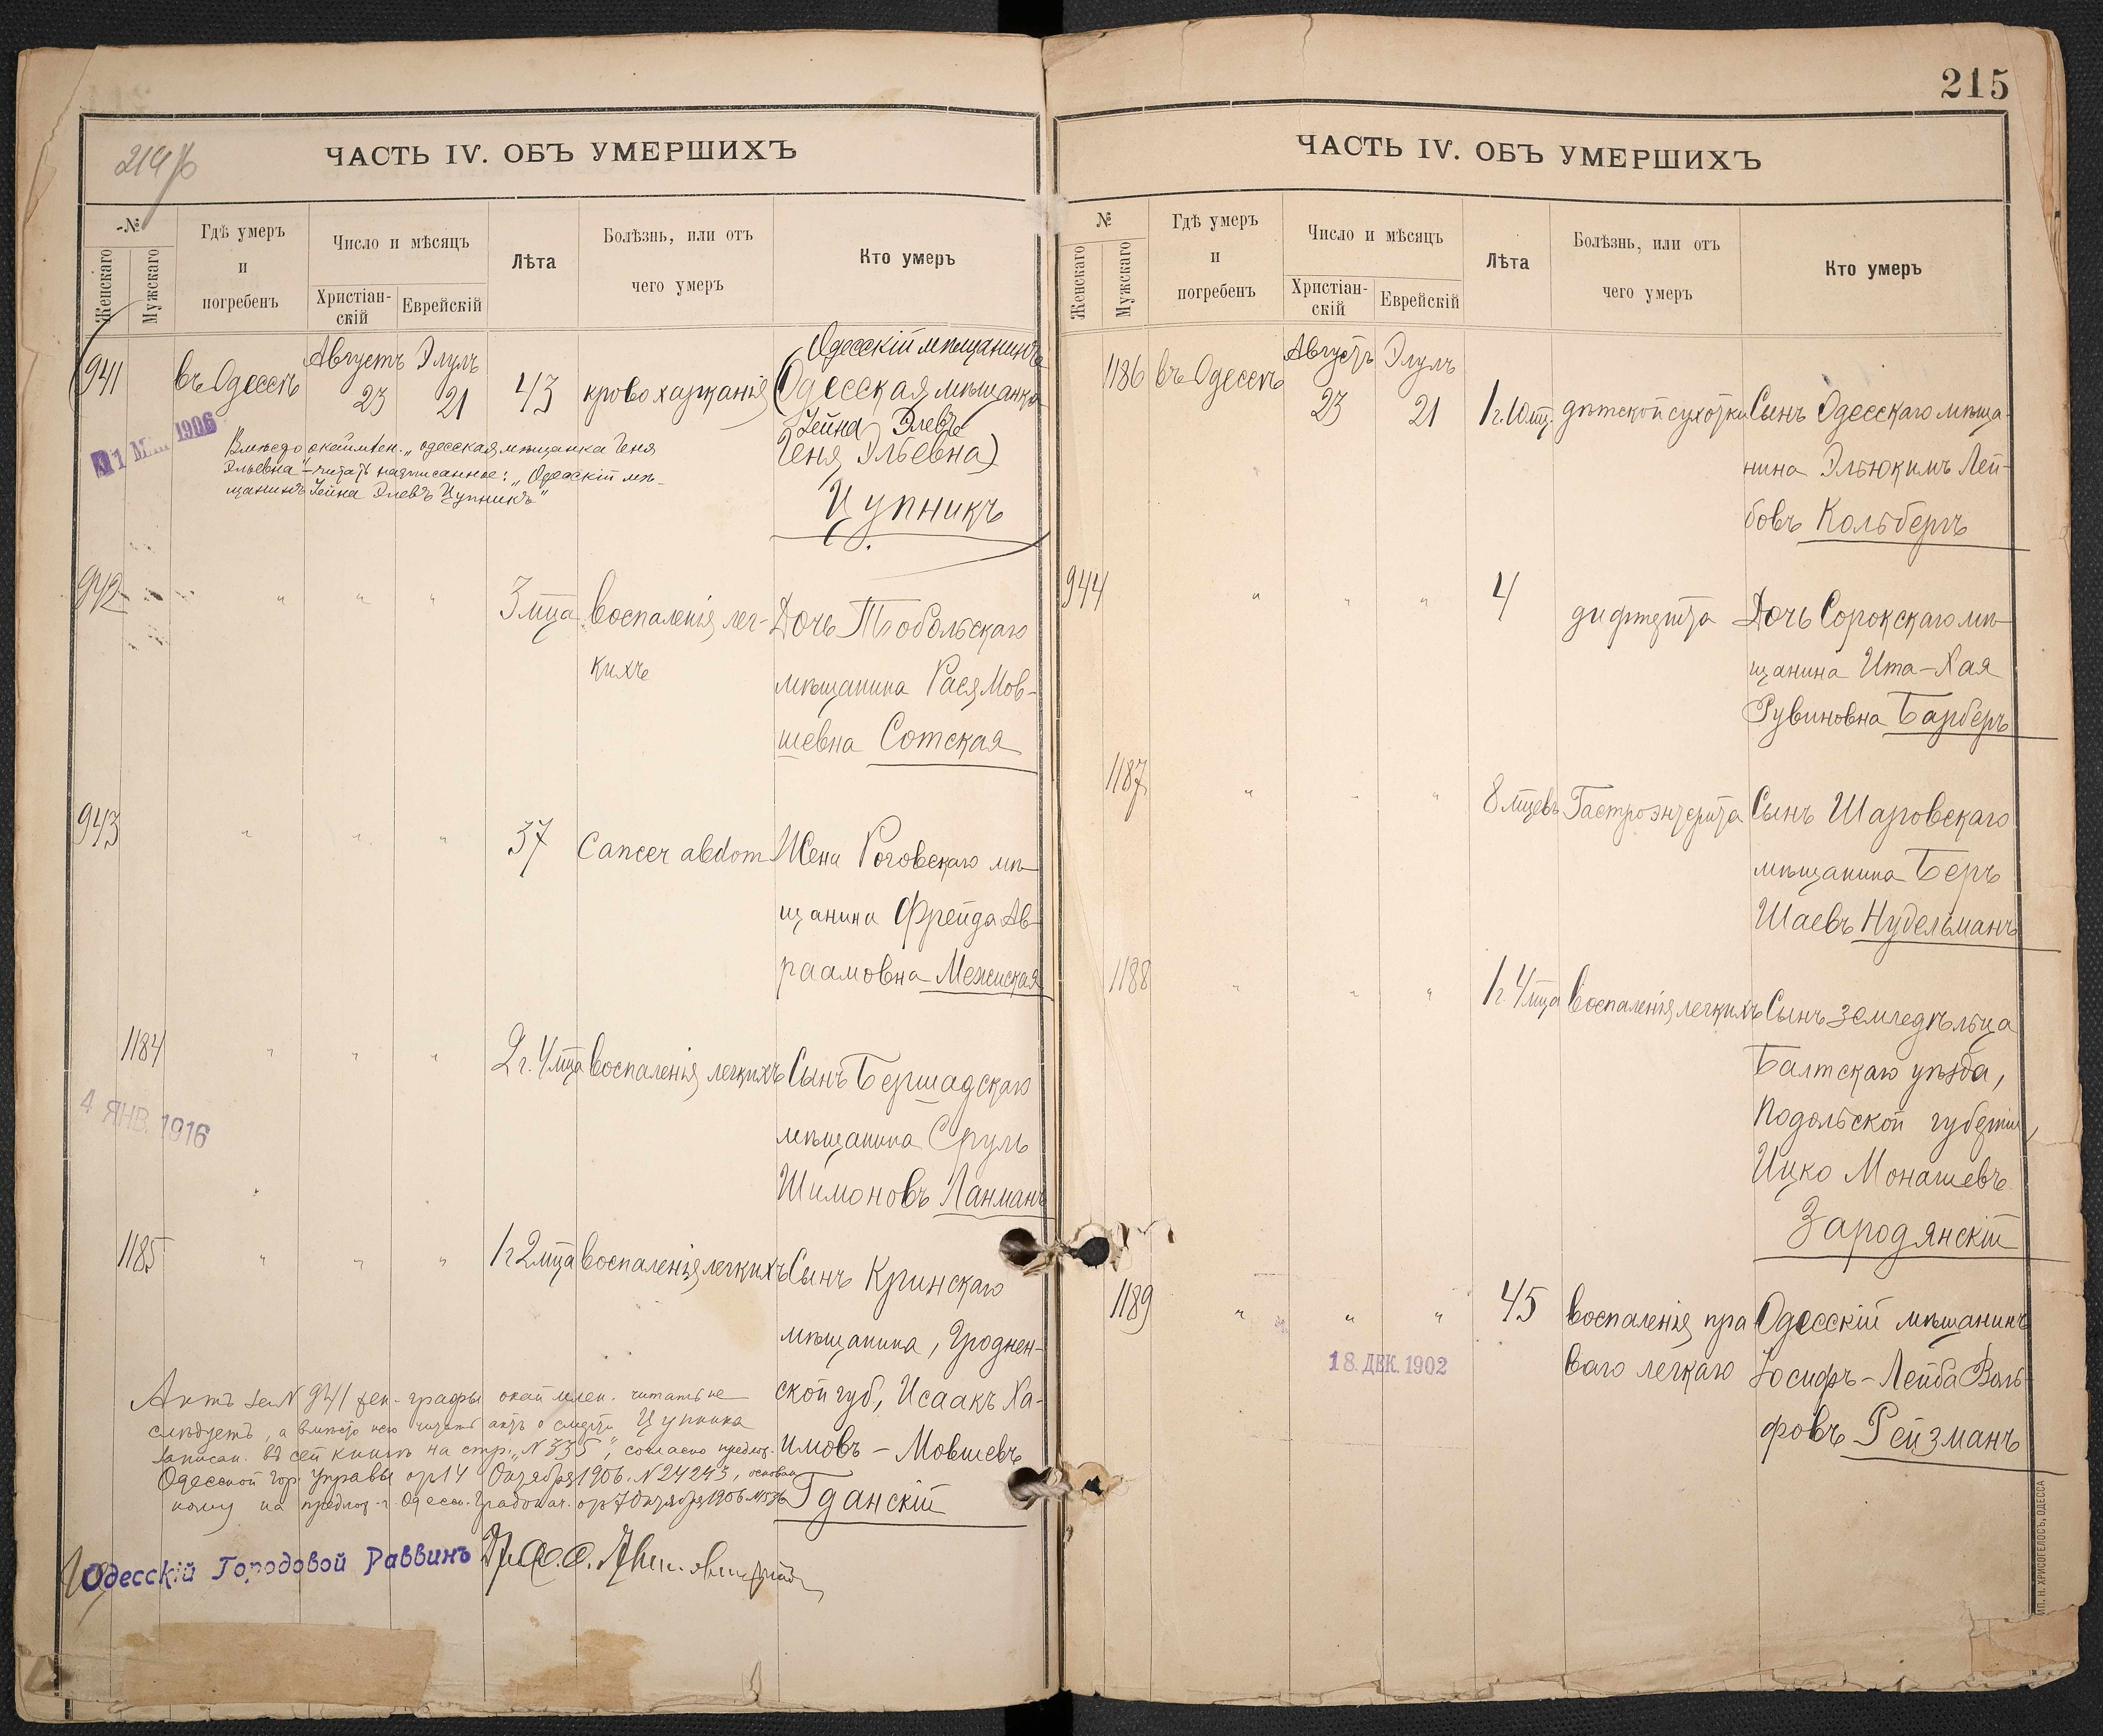 214 об
ЧАСТЬ IV. ОБЪ УМЕРШИХЪ
№
Женскаго
Мужскаго
Гдѣ умеръ
и
погребенъ
Число и мѣсяцъ
Христіан-
скій
Еврейскій
Лѣта
Болѣзнь, или отъ
чего умеръ
Кто умеръ
941
въ Одессѣ
Августъ
23
Элулъ
21
43
кровохарканія
Одесскій мѣщанинъ
(Одесская мѣщанка
Зейна Элевъ
Геня Эльевна)
Цупникъ
1906
Вмѣсто окаймлен. „одесская мѣщанка Геня
Эльевна" – читать надписанное: „Одесскій мѣ-
щанинъ Зейна Элевъ Цупникъ"
942
"
"
"
3 мца
воспаленія лег-
кихъ
Дочь Тобольскаго
мѣщанина Рася Мов-
шевна Сотская
943
"
"
"
37
Cancer abdom
Жена Роговскаго мѣ-
щанина Фрейда Ав-
раамовна Межиская
1184
"
"
"
2 г. 4 мца
воспаленія легкихъ
Сынъ Бершадскаго
мѣщанина Сруль
Шимоновъ Ланманъ
4 ЯНВ. 1916
1185
"
"
"
1 г 2 мца
воспаленія легкихъ
Сынъ Кринскаго
мѣщанина, Гроднен-
ской губ., Исаакъ Ха-
имовъ – Мовшевъ
Гданскій
Актъ за N 941 жен. графы окаймлен. читать не
слѣдуетъ, а вмѣсто него читать актъ о смерти Цупника
записан. въ сей книгѣ на стр. „N 335", согласно предлож.
Одесской Гор. Управы от 14 Октября 1906. N 24243, основан
ному на предлож. г. Одесск. Градонач. от 7 Октября 1906 N
Одесскій Городовой Раввинъ
215
ЧАСТЬ IV. ОБЪ УМЕРШИХЪ
№
Женскаго
Мужскаго
Гдѣ умеръ
и
погребенъ
Число и мѣсяцъ
Христіан-
скій
Еврейскій
Лѣта
Болѣзнь, или отъ
чего умеръ
Кто умеръ
1186
въ Одессѣ
Августъ
23
Элулъ
21
1 г. 10 мц.
дѣтской сухотки
Сынъ Одесскаго мѣща-
нина Эльюкимъ Лей-
бовъ Кольбергъ
944
"
"
"
4
дифтерита
Дочь Сорокскаго мѣ-
щанина Ита-Хая
Рувиновна Барберъ
1187
"
"
"
8 мцевъ
Гастроэнтерита
Сынъ Шаровскаго
мѣщанина Беръ
Шаевъ Нудельманъ
1188
"
"
"
1 г. 4 мца
воспаленія легкихъ
Сынъ земледѣльца
Балтскаго уѣзда,
Подольской губерніи,
Ицко Монашевъ
Зародянскій
1189
"
"
"
45
воспаленія пра
ваго легкаго
Одесскій мѣщанинъ
Іосифъ-Лейба Воль-
фовъ Рейзманъ
18. ДЕК. 1902
ТИП. Н. ХРИСОГЕЛОСЪ, ОДЕССА